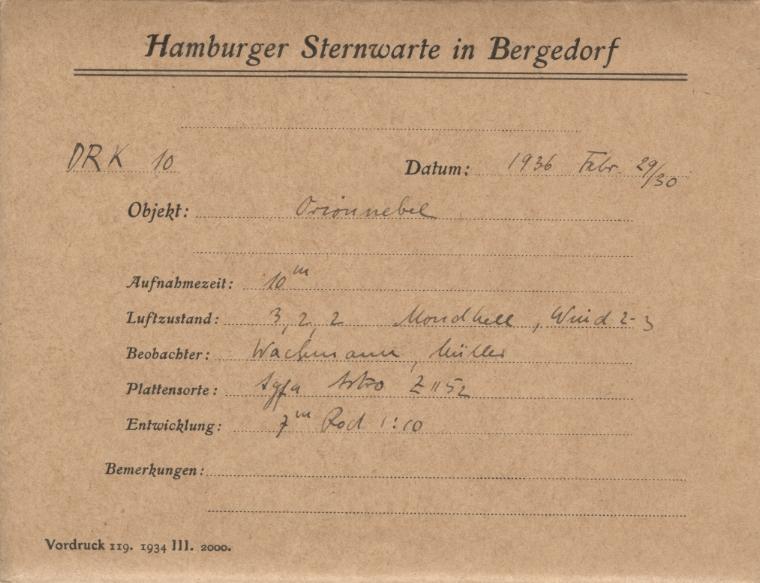 Hamburger Sternwarte in Bergedorf
DRK 10
Datum: 1936 Febr. 29/30
Objekt: Orionnebel
Aufnahmezeit: 10ᵐ
Luftzustand: 3, 2, 2 Mondhell, Wind 2-3
Beobachter: Wachmann, Müller
Plattensorte: Agfa Astro Z 1152
Entwicklung: 7ᵐ Rod 1:10
Bemerkungen:
Vordruck 119. 1934 III. 2000.